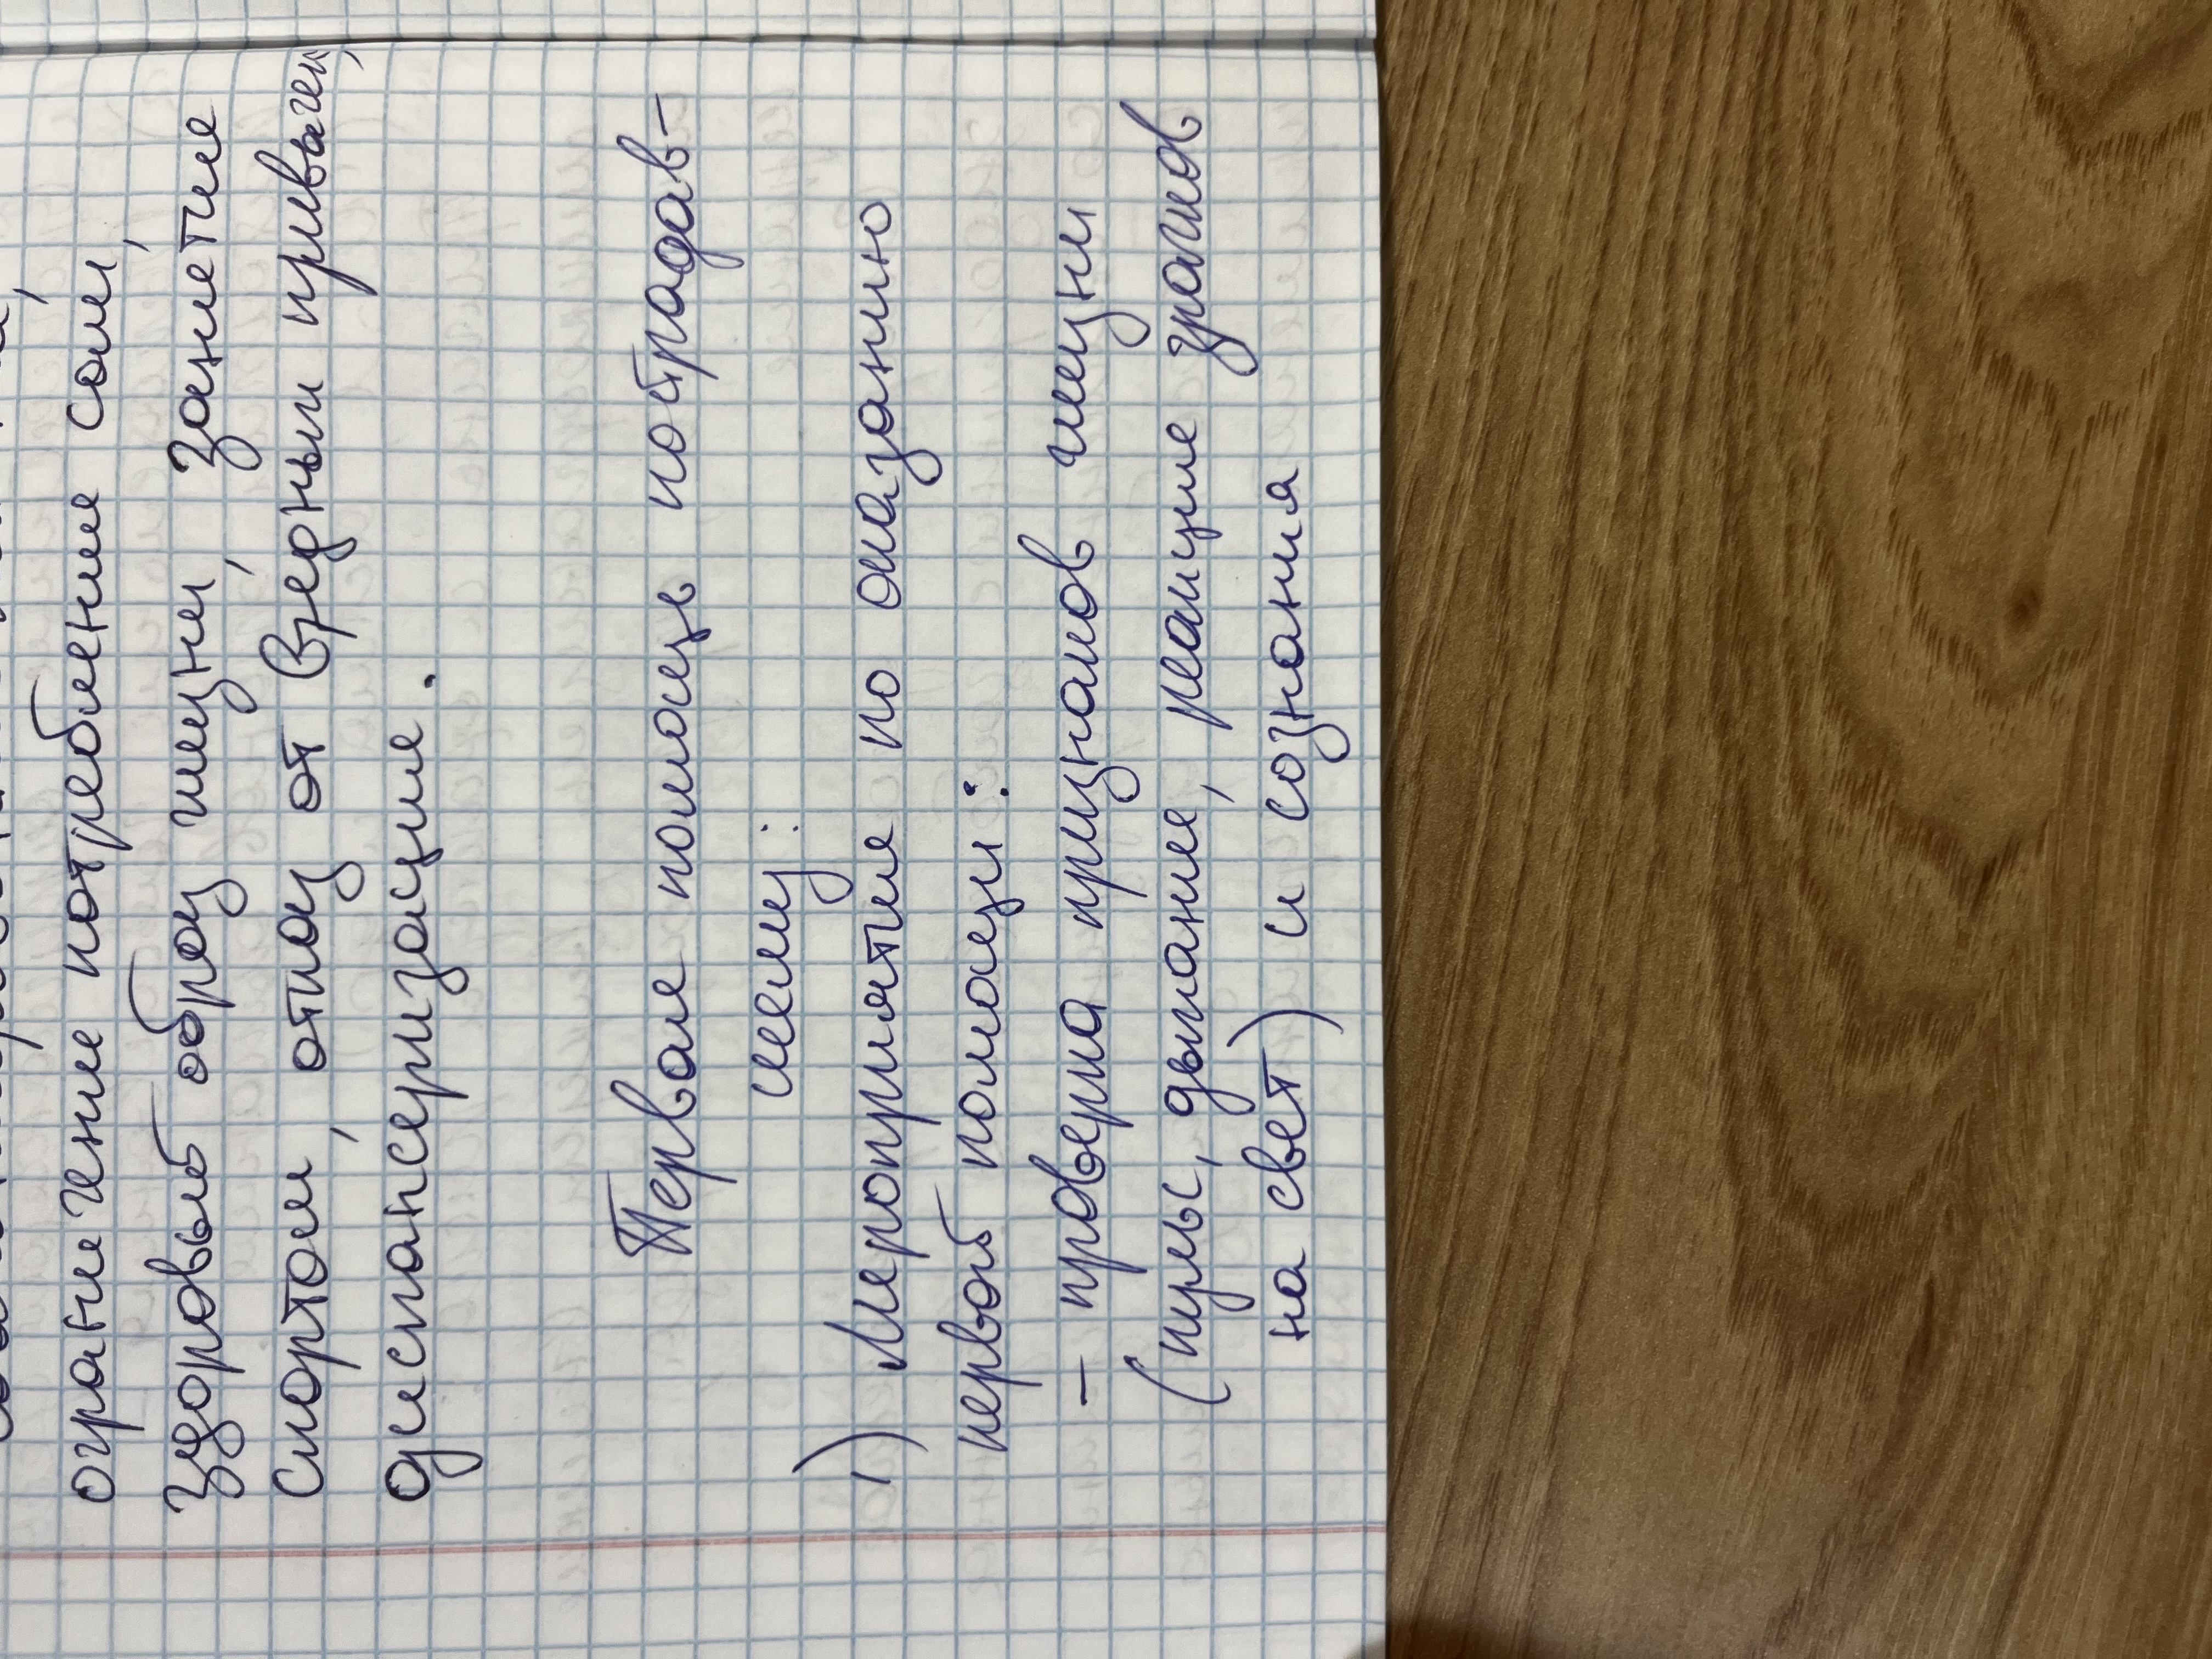 ограничение потребление соли,
здоровый образ жизни, занятие
спортом, отказ от вредных привычек,
диспансеризацие.
Первае помощь пострадав-
шему:
1) Мероприятие по оказанию
первой помощи:
– проверка признаков жизни
(пульс, дыхание, реакцие зрачков
на свет) и сознания